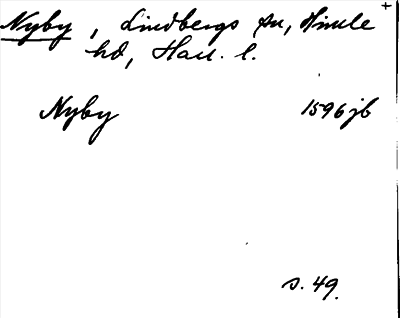 Nyby, Lindbergs sn, Himle
hd, Hall. l.
Nyby 1596 jb
s. 49.